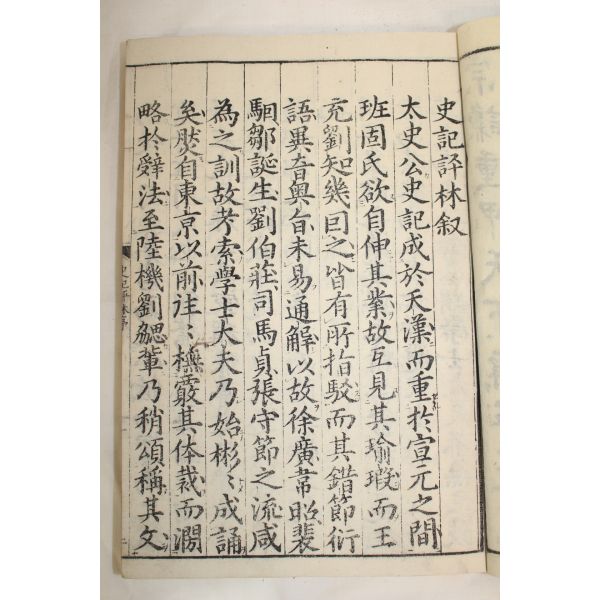 史記評林叙
太史公史記成於天漢而重於宣元之間
班固氏欲自伸其業故互見其瑜瑕而王
充劉知幾回之皆有所指駁而其錯節衍
語異音奥旨未易通解以故徐廣韋昭裴
駰鄒誕生劉伯莊司馬貞張守節之流咸
為之訓故考索學士大夫乃始彬〻成誦
矣然自東京以前往〻橅嚴其体裁而濶
略於辭法至陸機劉勰輩乃稍頌稱其文
史記評林序